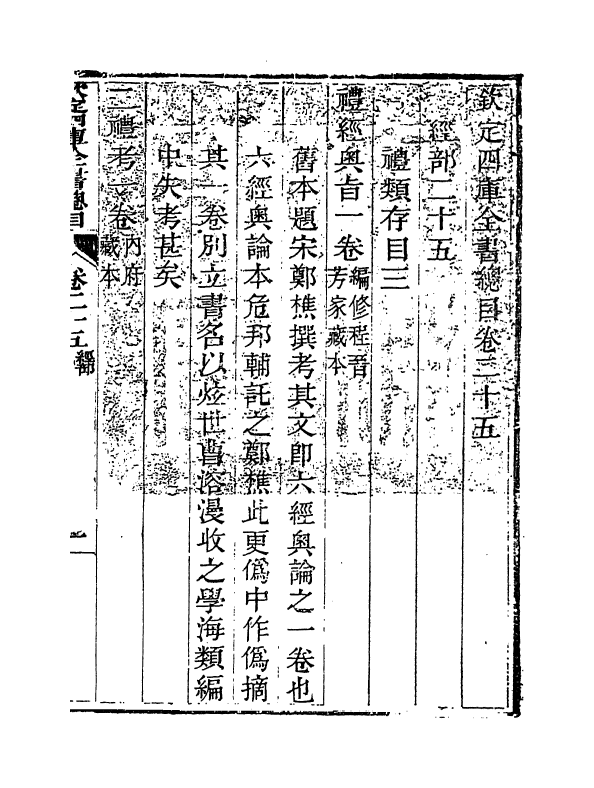 欽定四庫全書總目卷二十五
經部二十五
禮類存目三
禮經奧旨一卷編修程晉芳家藏本
舊本題宋鄭樵撰考其文即六經奧論之一卷也
六經奧論本危邦輔託之鄭樵此更僞中作僞摘
其一卷別立書名以炫世曹溶漫收之學海類編
中失考甚矣
二禮考一卷內府藏本
欽定四庫全書總目 卷二十五 經部 一